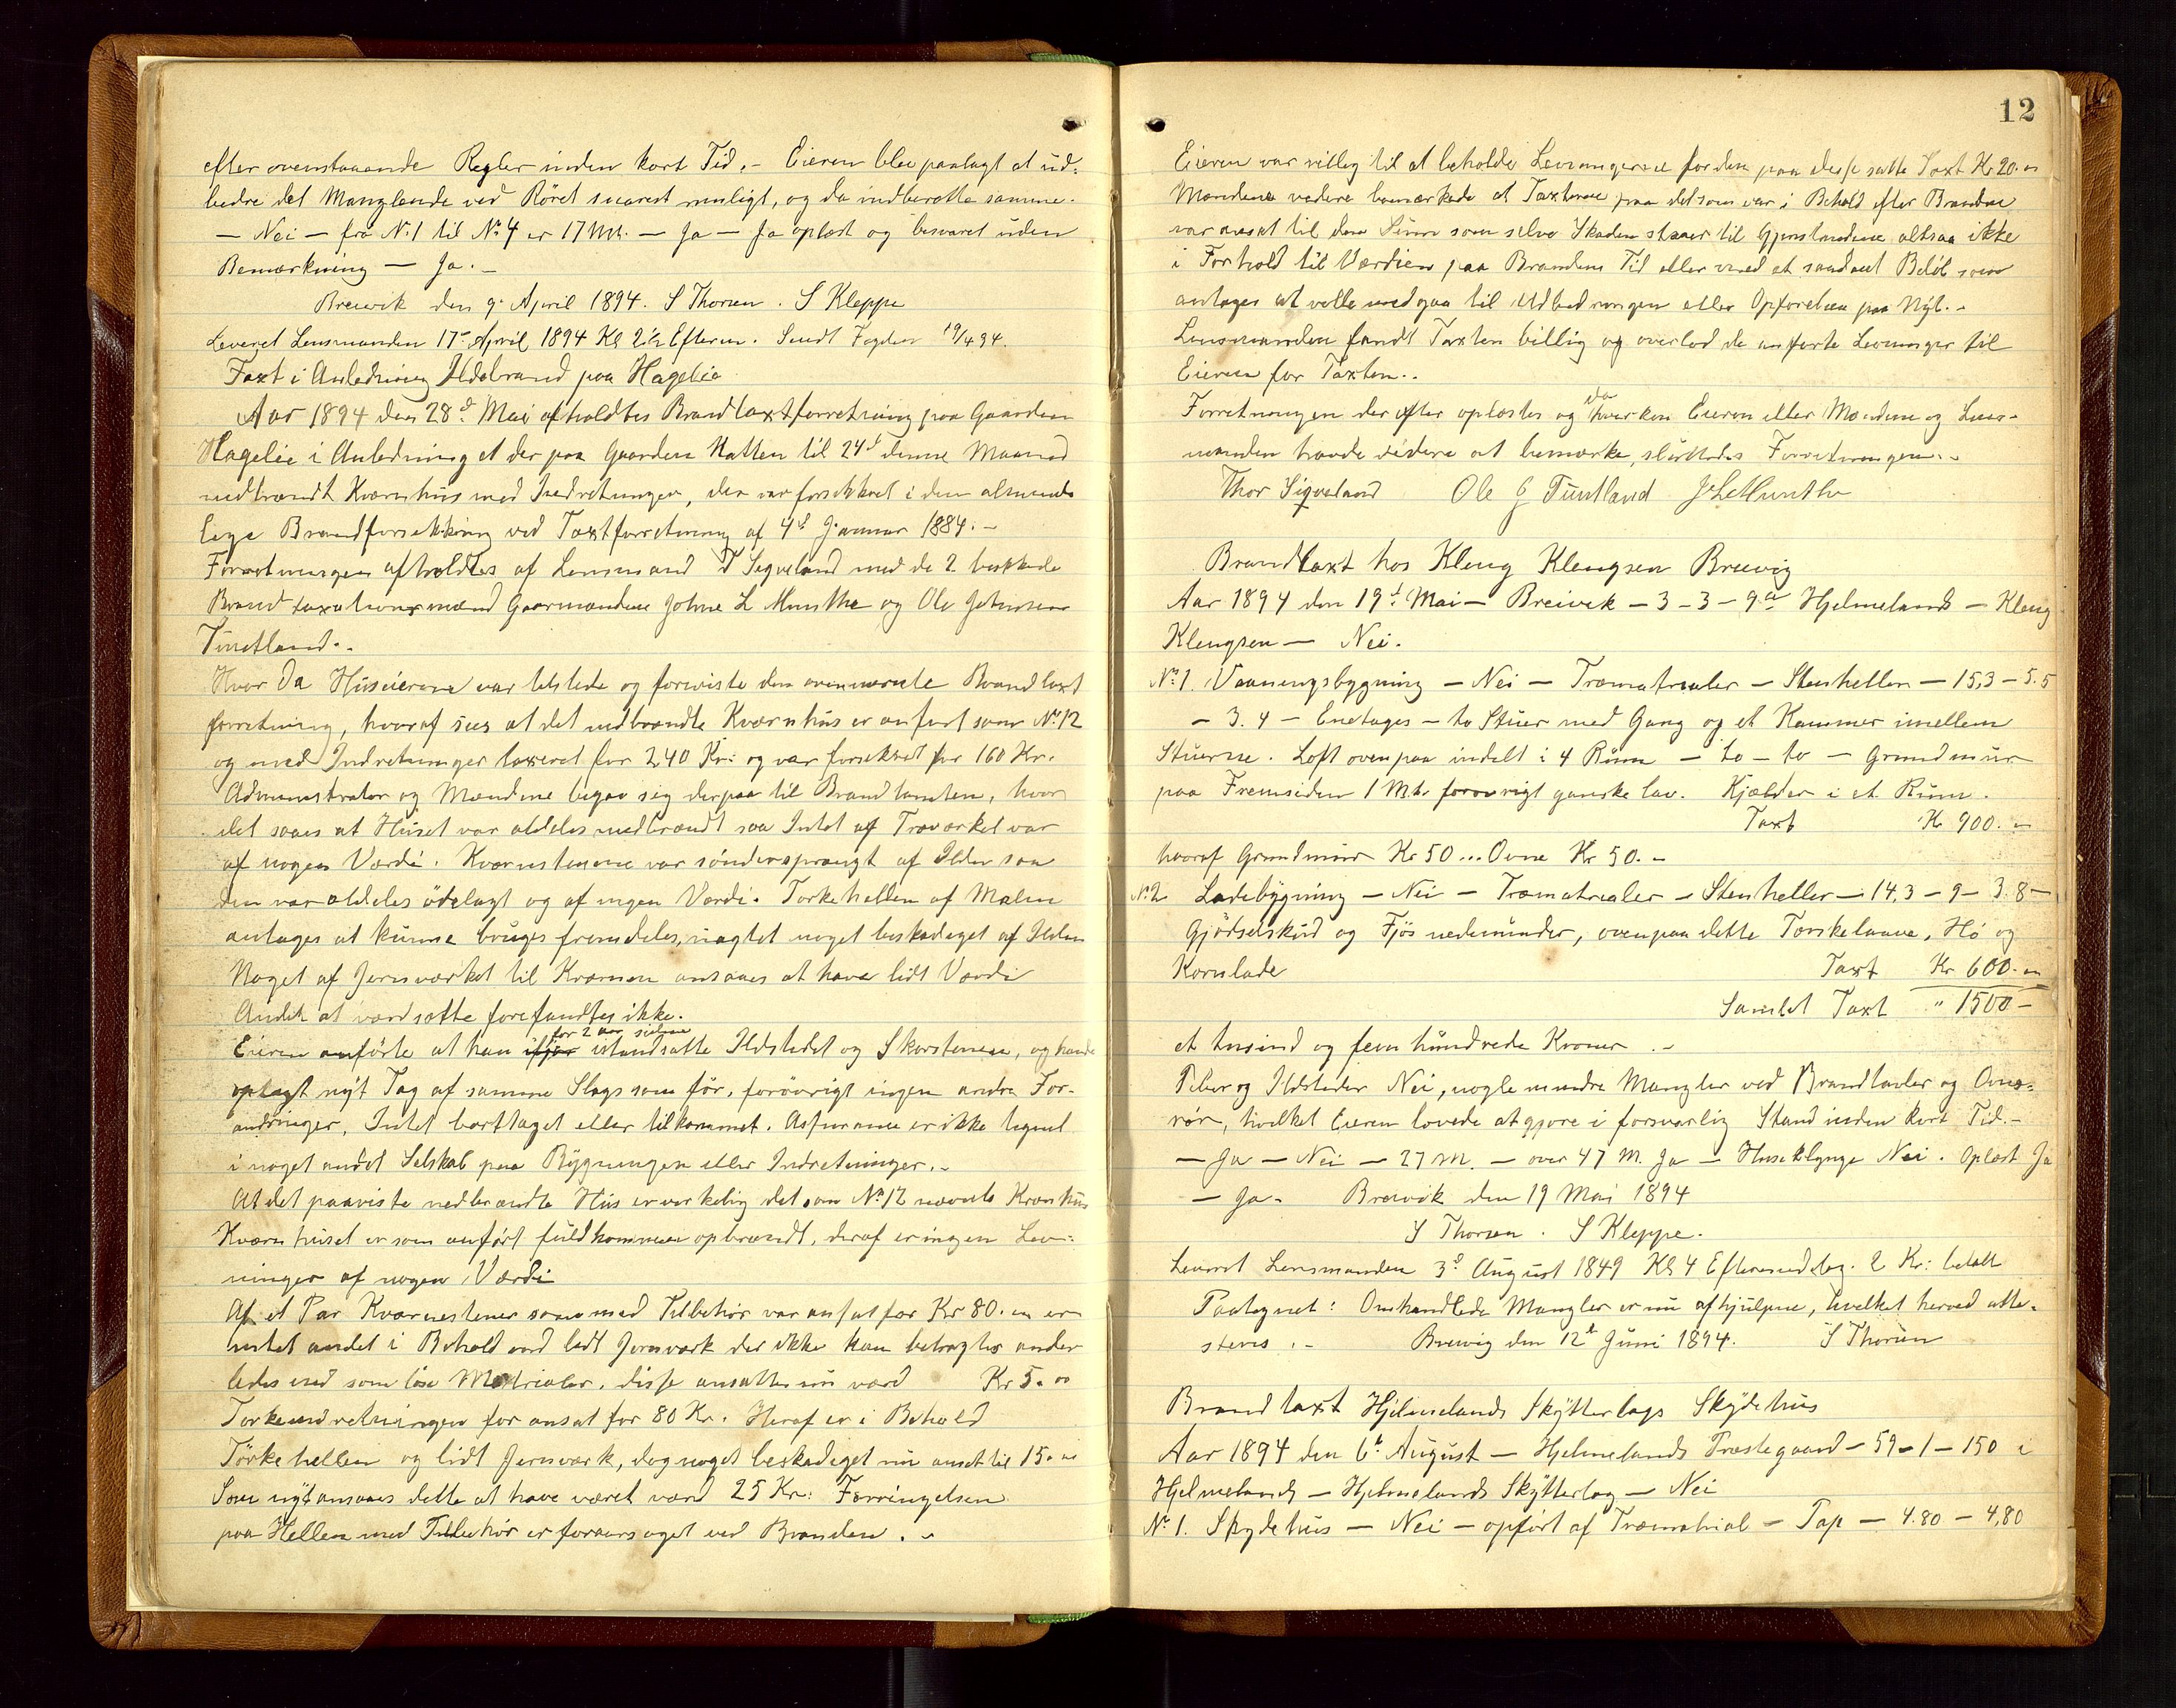 efter ovenstaaende Regler inden kort Tid. - Eieren blev paalagt at ud-
bedre det Manglende ved Röret snarest muligt, og da indberette samme.
- Nei - fra No 1 til No 4 er 17 Mtr. - Ja - Ja oplæst og besvaret uden
Bemærkning - Ja. -
Breivik den 9. April 1894. S Thorsen. S Kleppe
Leveret Lensmanden 17de April 1894 Kl 2½ Efterm. Sendt Fogden 19/4 94.
Taxt i Anledning Ildebrand paa Hagelie
Aar 1894 den 28d. Mai afholdtes Brandtaxtforretning paa Gaarden
Hagelie i Anledning at der paa Gaarden Natten til 24d denne Maaned
nedbrændt Kværnhus med Indretninger, der var forsikkret i den alminde
lige Brandforsikkring ved Taxtforretning af 4d Januar 1884. -
Forretningen afholdtes af Lensmand T Sigveland med de 2 beskikkede
Brandtaxationsmænd Gaarmændene Johne L Munthe og Ole Johnsen
Tuntland. -
Hvor da Huseieren var tilstede og forviste den ovennævnte Brandtaxt
forretning, hvoraf sees at det nedbrændte Kværnhus er anført som No 12
og med Indretninger taxeret for 240 Kr: og var forsikret for 160 Kr.
Administrator og Mændene begav sig derpaa til Brandtomten, hvor
det saaes at Huset var aldeles nedbrændt saa Intet af Træværket var
af nogen Værdi. Kværnstenene var söndersprængt af Ilden saa
den var aldeles ödelagt og af ingen Værdi. Torkehellen af Malm
antages at kunne bruges fremdeles, uagtet noget beskadiget af Ilden
Noget af Jernværket til Kværnen ansaaes at have lidt Værdi
Andet at værdsætte forefandtes ikke.
for 2 aar siden
Eieren anförte at han ifjor istandsatte Ildstedet og Skorstenen, og havde
oplagt nyt Tag af samme Slags som för, forövrigt ingen andre For-
andringer, Intet borttaget eller tilkommet. Assurance er ikke tegnet
i noget andet Selskab paa Bygningen eller Indretninger. -
At det paaviste nedbrændte Hus er virkelig det som No 12 nævnte Kværnhus
Kværnhuset er som anfört fuldkommen opbrændt, deraf er ingen Lev-
ninger af nogen Værdi
Af et Par Kværnestener som med Tilbehör var ansat for Kr 80. er
intet andet i Behold end lidt Jernværk der ikke kan betragtes ander
ledes end som löse Materialer, disse ansattes nu værd Kr 5.00
Torkeindretningen for ansat for 80 Kr. Heraf er i Behold
Törkehellen og lidt Jernværk, dog noget beskadiget nu ansat til 15.00
Som nyt ansaaes dette at have været værd 25 Kr. Forringelsen
paa Hellen med Tilbehör er foraarsaget ved Branden. -
12
Eieren var villig til at beholde Levningerne for den paa disse satte Taxt Kr 20.00
Mændene videre bemærkede at Taxterne paa det som var i Behold efter Branden
var ansat til den Sum som selve Skaden staaer til Gjenstandene altsaa ikke
i Forhold til Værdien paa Brandens Tid eller med et saadant Belöb som
antages at ville medgaa til Udbedringen eller Opförelsen paa Nyt. -
Lensmanden fandt Taxten billig og overlod de anförte Levninger til
Eieren for Taxten. -
da
Forretningen derefter oplæstes og hverken Eieren eller Mændene og Lens-
manden havde videre at bemærke, sluttedes Forretningen. -
Thor Sigveland Ole J Tuntland J L Munthe
Brandtaxt hos Kleng Klengsen Breivig
Aar 1894 den 19d Mai - Breivik - 3 - 3 - 9 a Hjelmelands - Kleng
Klengsen - Nei.
No 1. Vaaningsbygning - Nei - Træmatrialer - Stenheller - 15,3 - 5.5
- 3.4 - Enetages - to Stuer med Gang og et Kammer imellem
Stuerne. Loft ovenpaa indelt i 4 Rum - to - to - Grundmur
paa Fremsiden 1 Mtr forövrigt ganske lav. Kjælder i et Rum.
Taxt Kr 900. -
hvoraf Grundmur Kr 50... Ovne Kr 50. -
No 2 Ladebygning - Nei - Træmatrialer - Stenheller - 14,3 - 9 - 3.8 -
Gjödselskud og Fjös nedenunder, ovenpaa dette Torskelaave, Hö og
Kornlade Taxt Kr 600. -
Samlet Taxt " 1500 -
et tusind og fem hundrede Kroner. -
Piber og Ildsteder Nei, nogle mindre Mangler ved Brandtavler og Ovns-
rör, hvilket Eieren lovede at gjöre i forsvarlig Stand inden kort Tid. -
- Ja - Nei - 27 M. - over 47 M. Ja - Huseklynge Nei. Oplæst Ja
- Ja. Breivik den 19 Mai 1894
S Thorsen. S Kleppe.
Leveret Lensmanden 3d August 1849 Kl 4 Eftermiddag. 2 Kr: betalt
Paategnet: Omhandlede Mangler er nu afhjulpne, hvilket herved atte-
steres. - Breivig den 12d Juni 1894. S Thorsen
Brandtaxt Hjelmelands Skytterlags Skydehus
Aar 1894 den 6d August - Hjelmelands Præstegaard - 59 - 1 - 150 i
Hjelmelands - Hjelmelands Skytterlag - Nei
No 1. Skydehus - Nei - opfört af Træmatrial - Pap - 4.80 - 4,80